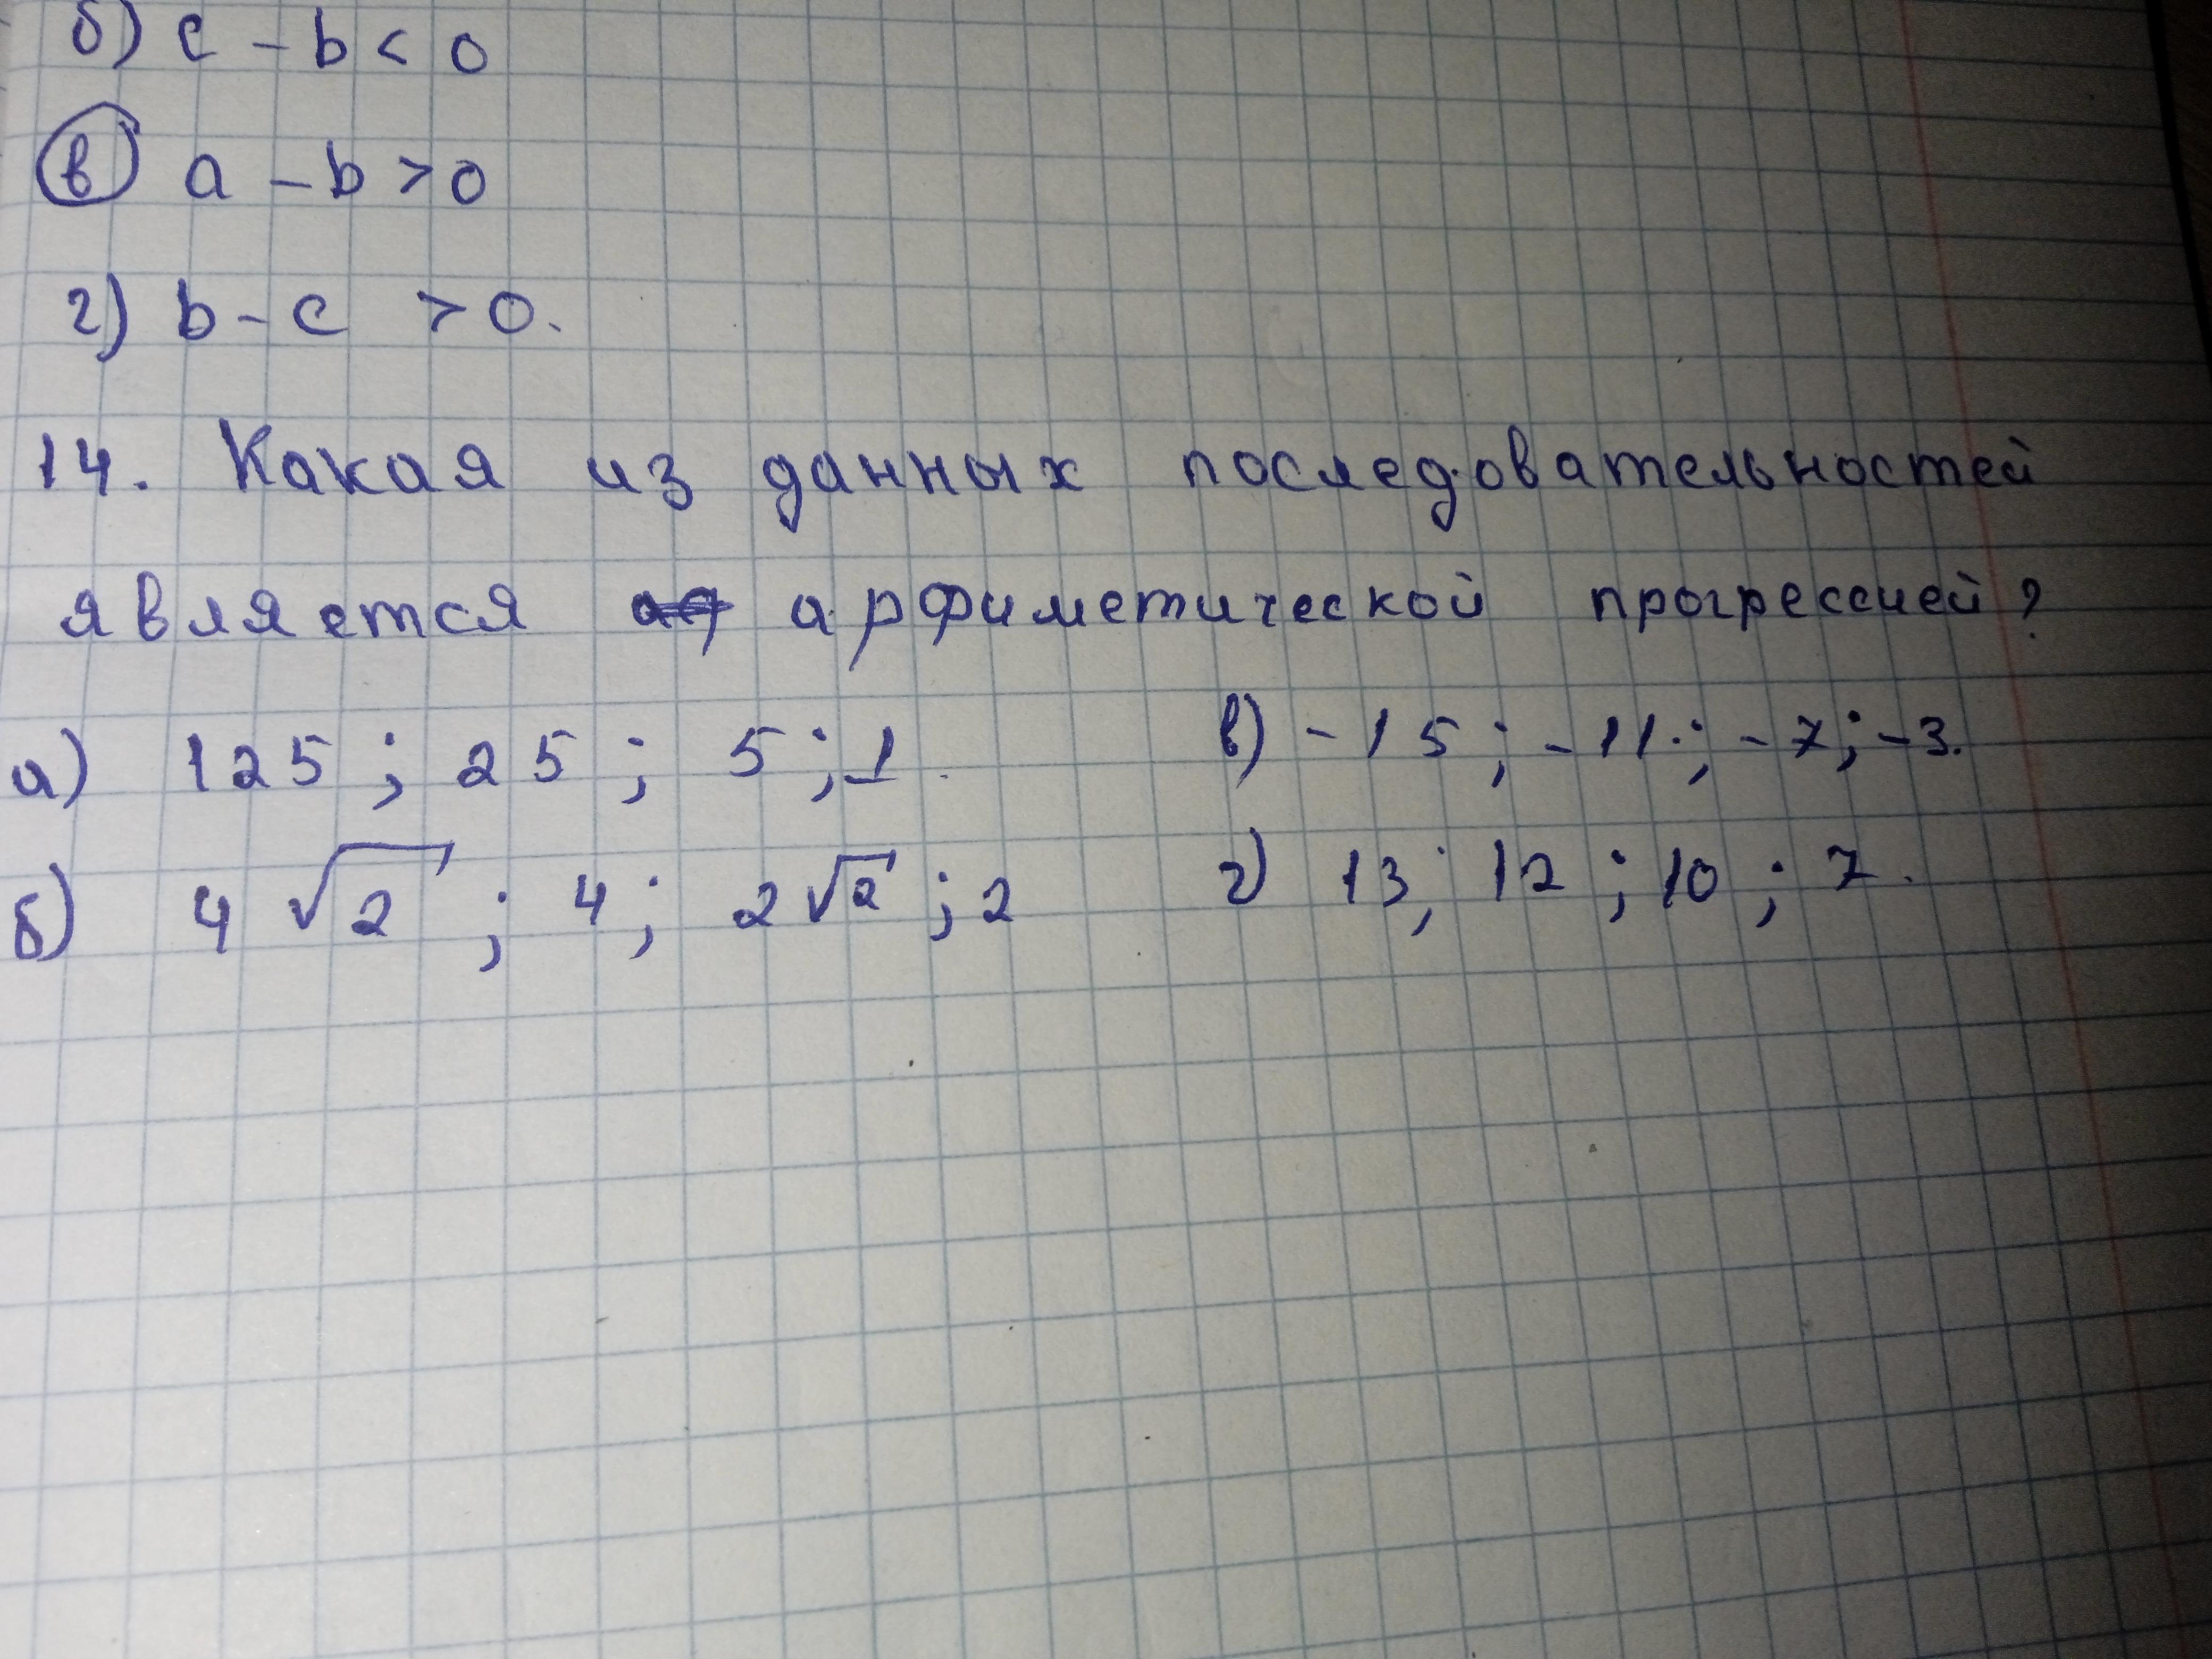 б) c - b < 0
в) a - b > 0
г) b - c > 0.
14. Какая из данных последовательностей
является арфиметической прогрессией?
а) 125 ; 25 ; 5 ; 1. в) -15 ; -11 ; -7 ; -3.
б) 4 √2 ; 4 ; 2√2 ; 2 г) 13 ; 12 ; 10 ; 7.